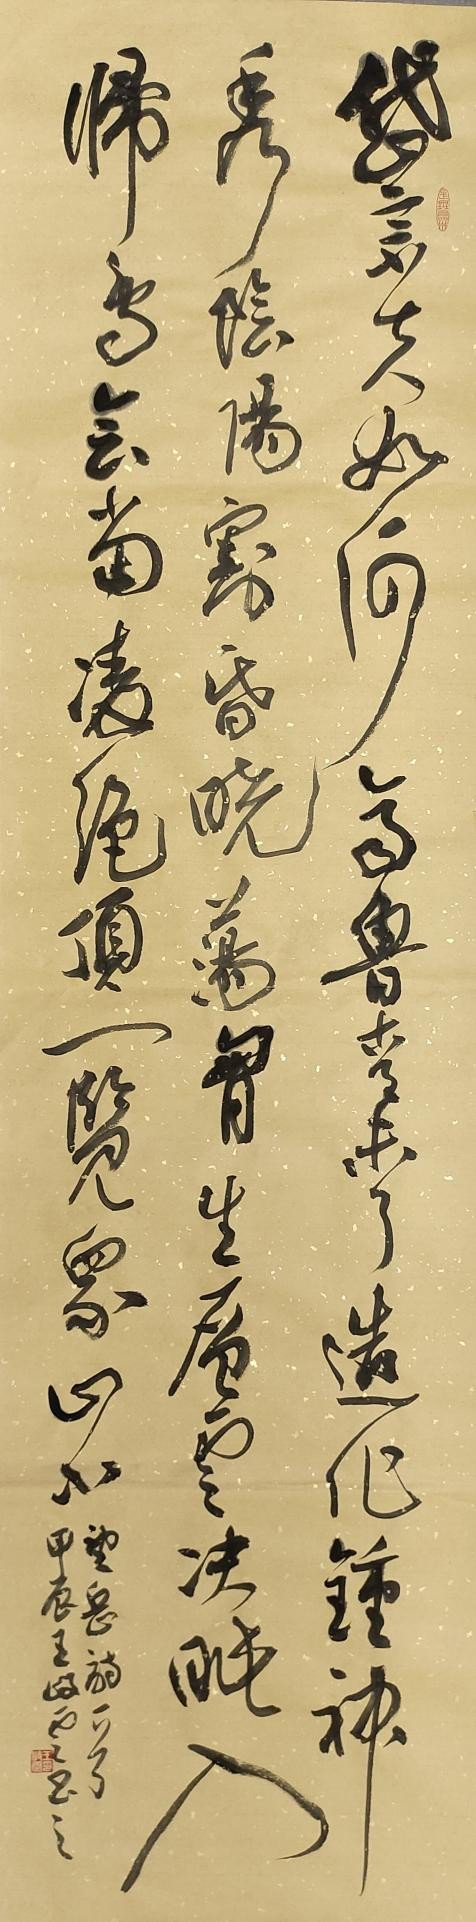 岱宗夫如何齊魯青未了造化鍾神
秀陰陽割昏曉蕩胷生層雲决眥入
歸鳥會當凌絕頂一覽眾山小
望岳詩一首
甲辰王政雲書之